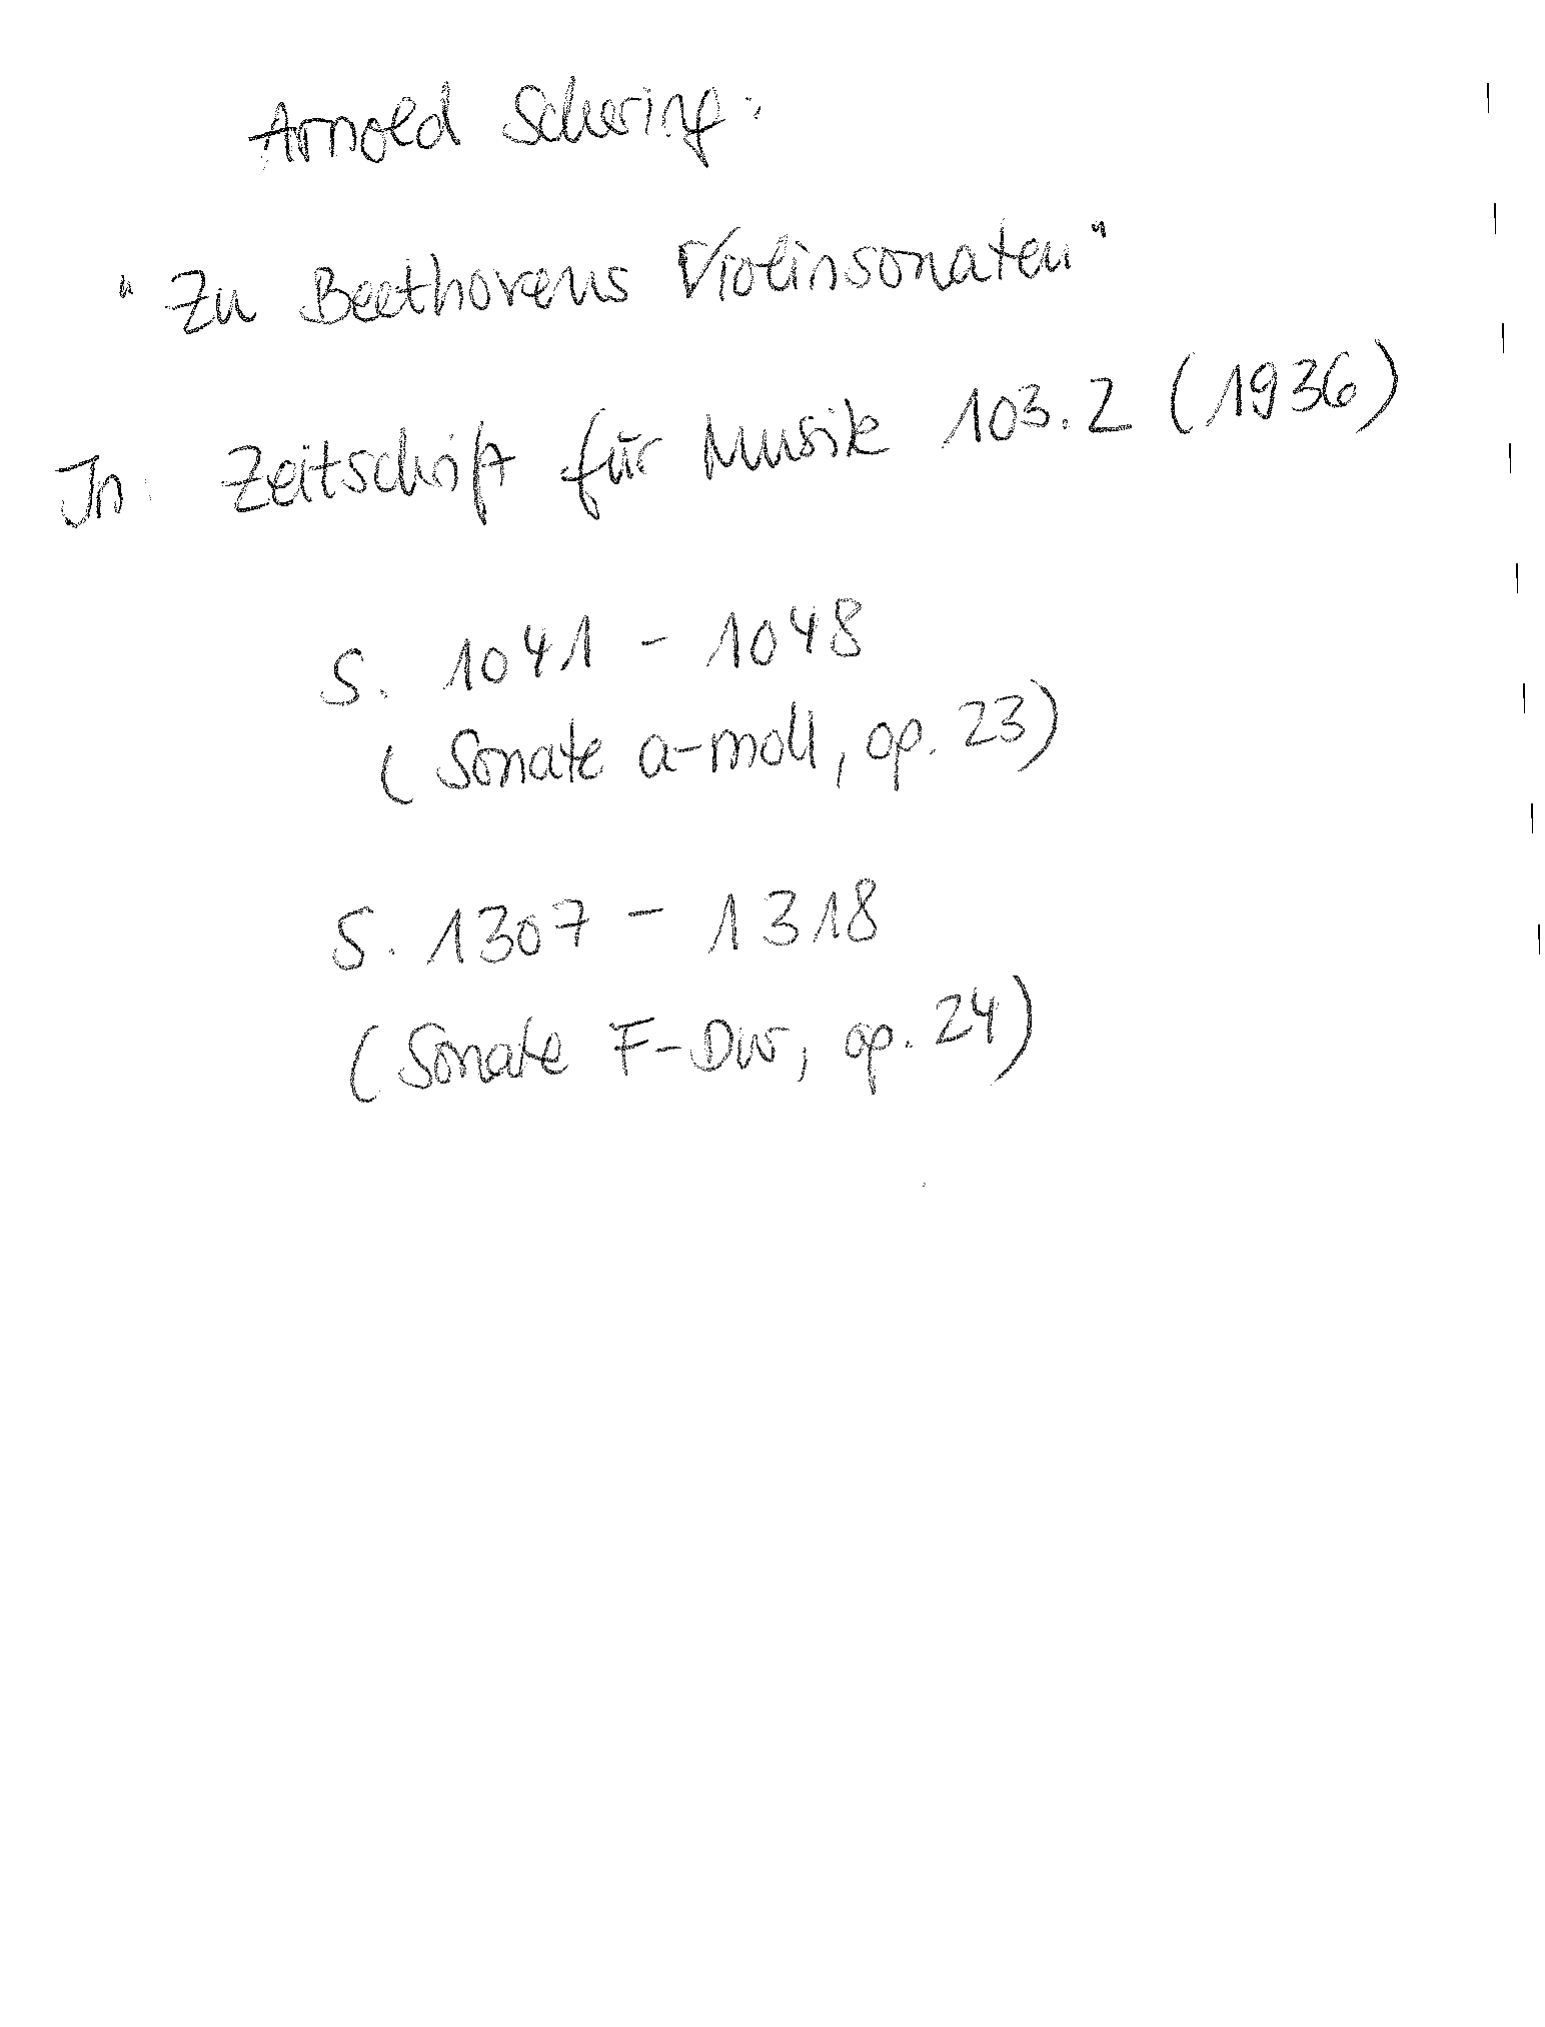 Arnold Schering:
"Zu Beethovens Violinsonaten"
In: Zeitschrift für Musik 103.2 (1936)
S. 1041 - 1048
(Sonate a-moll, op. 23)
S. 1307 - 1318
(Sonate F-Dur, op. 24)